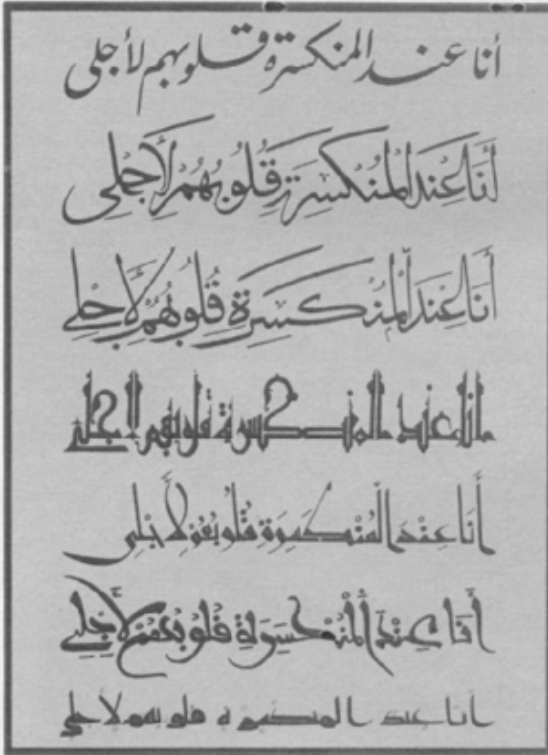 أنا عند المنكسرة قلوبهم لأجلي
أَنَا عِنْدَ الْمُنْكَسِرَةِ قُلُوبُهُمْ لِأَجْلِي
أَنَا عِنْدَ الْمُنْكَسِرَةِ قُلُوبُهُمْ لِأَجْلِي
انا عند المنكسرة قلوبهم لاجلي
أَنَا عِنْدَ الْمُنْكَسِرَةِ قُلُوبُهُمْ لِأَجْلِي
أَنَا عِنْدَ الْمُنْكَسِرَةِ قُلُوبُهُمْ لِأَجْلِي
انا عند المنكسرة قلوبهم لاجلي